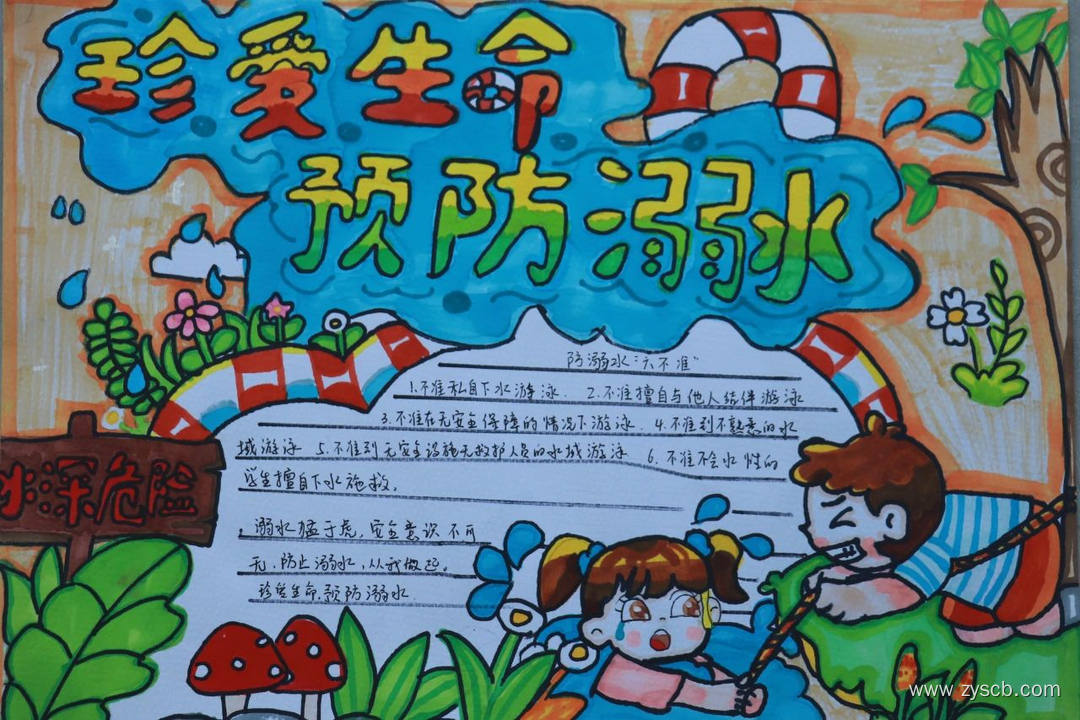 珍爱生命
预防溺水
防溺水"六不准"
1.不准私自下水游泳. 2.不准擅自与他人结伴游泳
3.不准在无安全保障的情况下游泳. 4.不准到不熟悉的水
域游泳 5.不准到无安全设施无救护人员的水域游泳 6.不准不会水性的
学生擅自下水施救.
溺水猛于虎,安全意识不可
无.防止溺水,从我做起.
珍爱生命.预防溺水
水深危险
www.zyscb.com